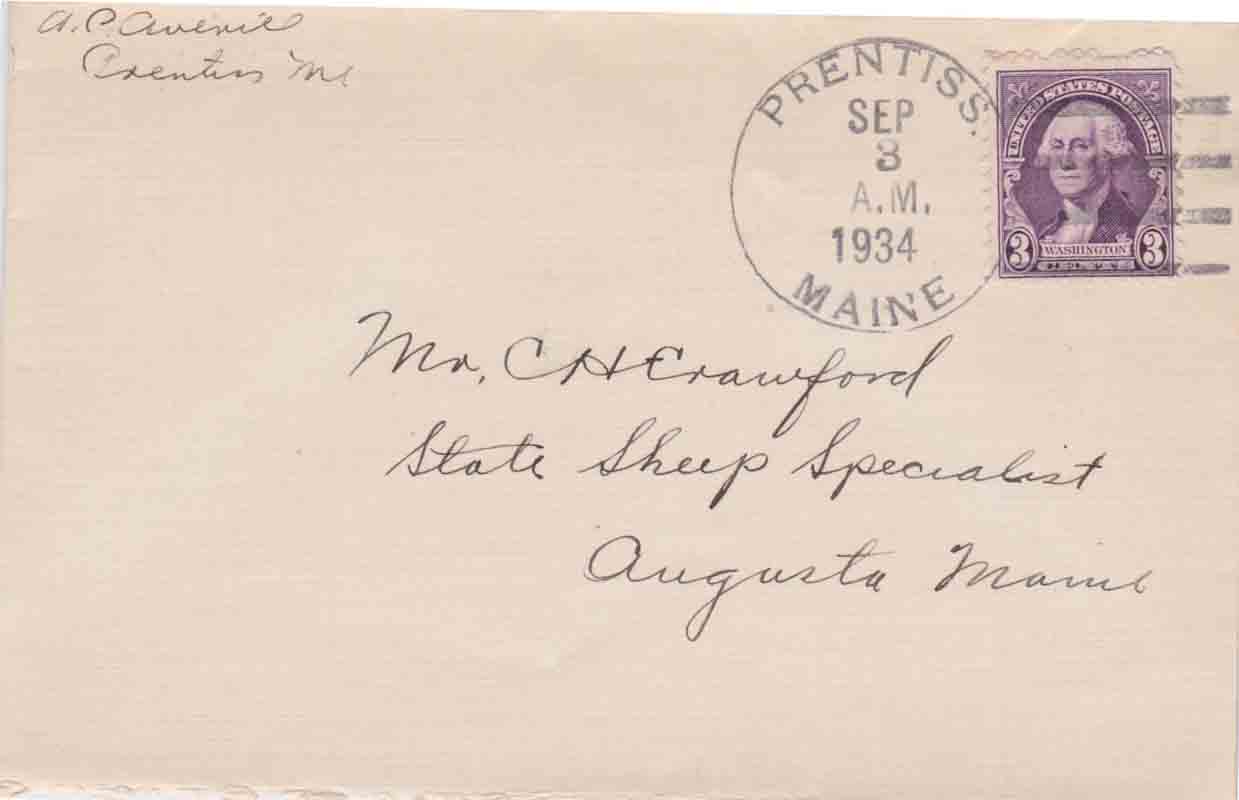 A. P. Averill
Prentiss Me
PRENTISS.
SEP
3
A.M.
1934
MAINE
UNITED STATES POSTAGE
3 WASHINGTON 3
CENTS
Mr. C H Crawford
State Sheep Specialist
Augusta Maine